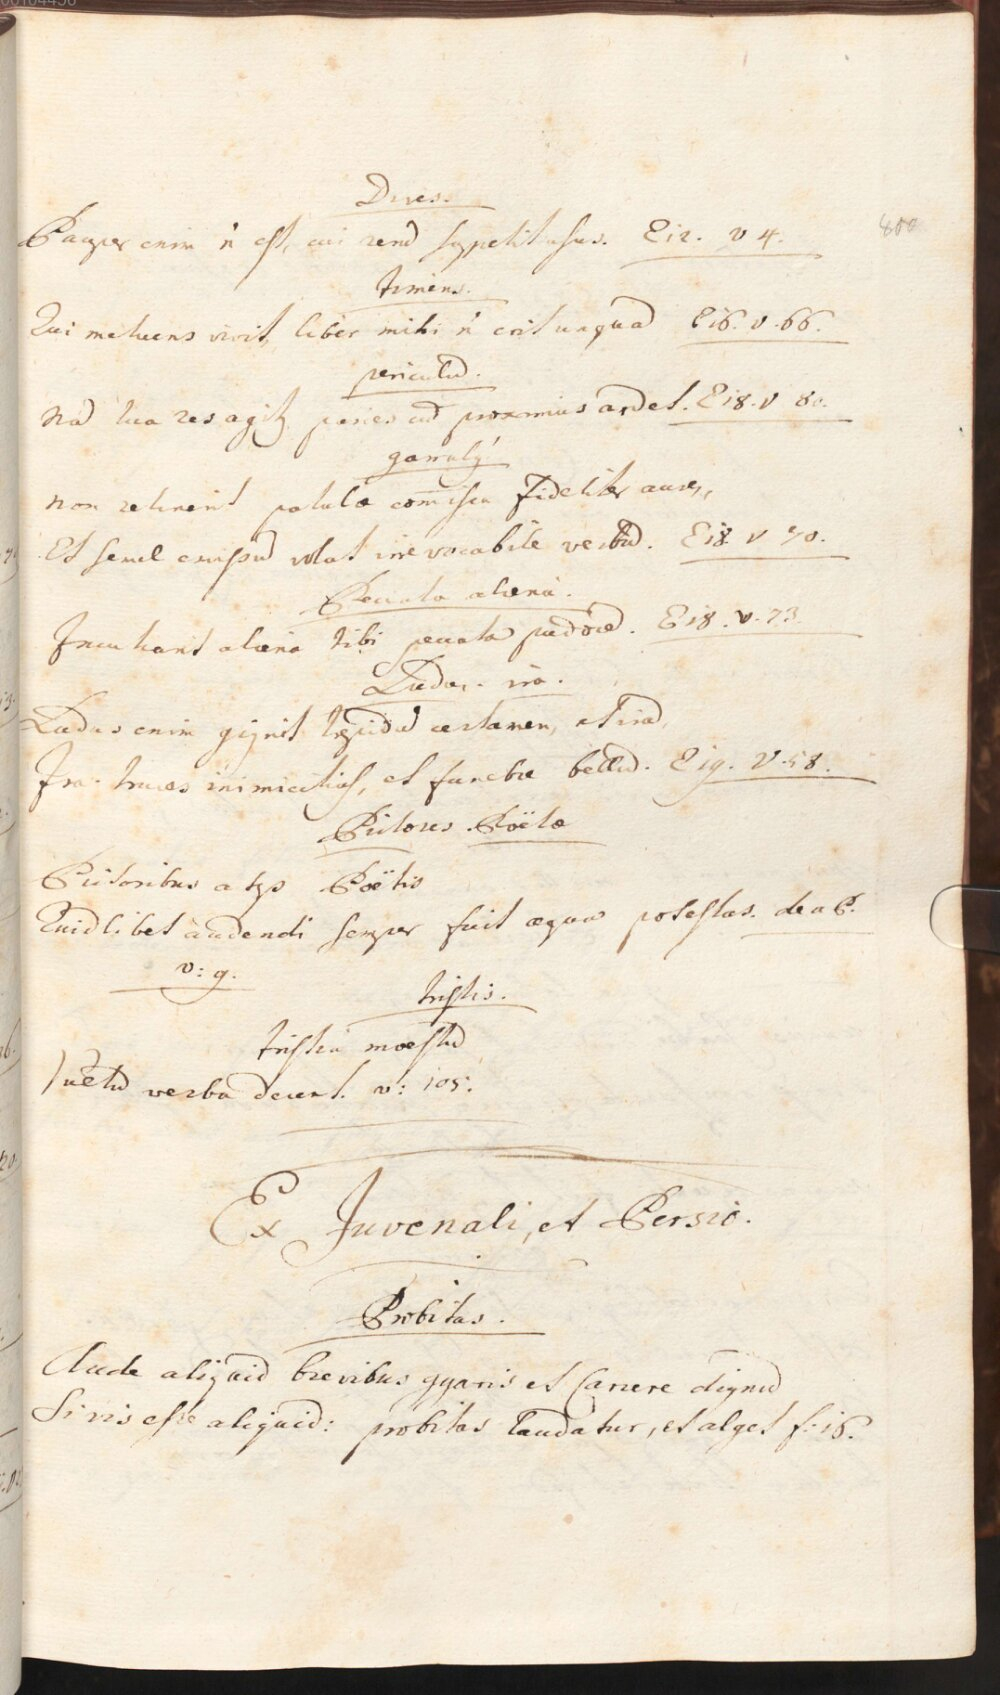 Dives.
Pauper enim ñ est, cui rerū suppetit usus. E 12. v 4.
400
timens.
Qui metuens vivit, liber mihi ñ erit unquā E 16. v. 66.
periculū.
Nā tua res agitꝫ paries cū proximus ardet. E 18. v 80.
garrulꝰ
Non retinent patulæ com̄issa fideliter aures,
Et semel emissū volat irrevocabile verbū. E 18 v 70.
Peccata aliena.
Incutiant aliena tibi peccata pudorē. E 18. v. 73.
Ludus. ira.
Ludus enim gignit trepidū certamen, et irā,
Ira truces inimicitias, et funebre bellū. E 19. V. 58.
Pictores. Poëtæ
Pictoribus atqꝫ Poëtis
Quidlibet audendi semper fuit æqua potestas. de a P.
v: 9.
tristis.
tristia moestū
Vultū verba decent. v: 105.
Ex Juvenali, et Persio.
Probitas.
Aude aliquid brevibus gyaris et carcere dignū
Si vis esse aliquid: probitas laudatur, et alget s: 1 6.